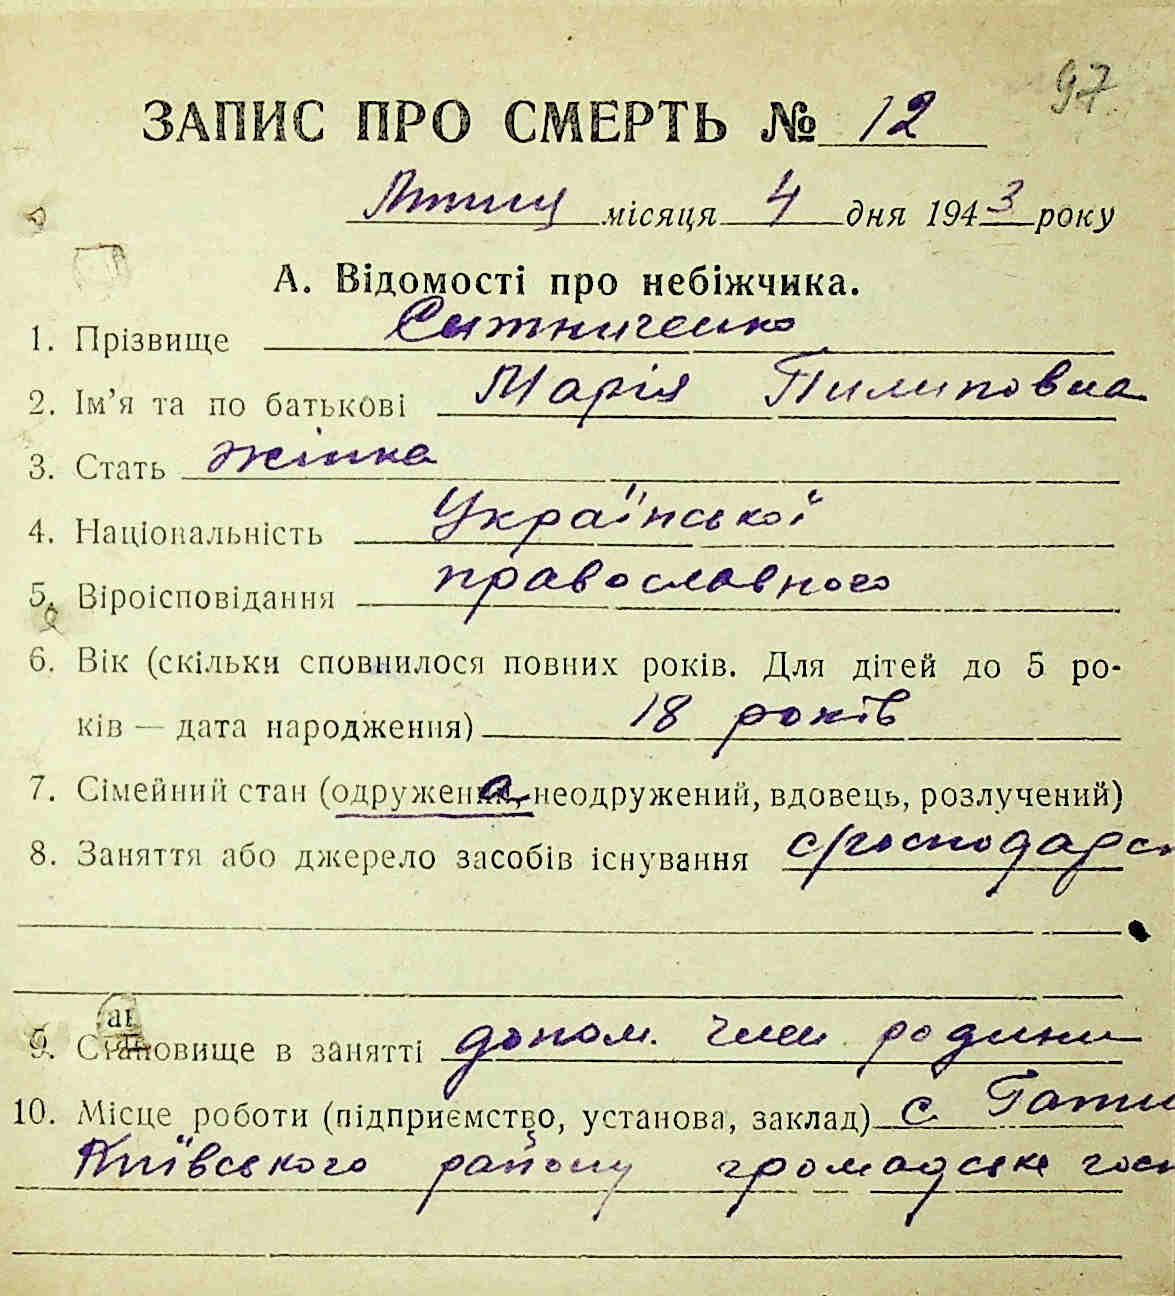 97
ЗАПИС ПРО СМЕРТЬ № 12
місяця 4 дня 1943 року
А. Відомості про небіжчика.
1. Прізвище Ситниченко
2. Ім’я та по батькові Марія Пилиповна
3. Стать жінка
4. Національність Української
5. Віроісповідання православного
6. Вік (скільки сповнилося повних років. Для дітей до 5 ро-
ків — дата народження) 18 років
7. Сімейний стан (одружена, неодружений, вдовець, розлучений)
8. Заняття або джерело засобів існування
9. Становище в занятті допом. член родини
10. Місце роботи (підприємство, установа, заклад) с
Київського району громадське